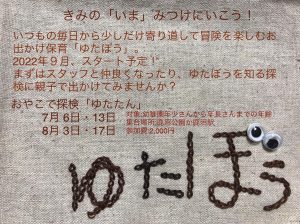 きみの「いま」みつけにいこう！
いつもの毎日から少しだけ寄り道して冒険を楽しむお
出かけ保育「ゆたぼう」。
2022年９月、スタート予定！
まずはスタッフと仲良くなったり、ゆたぼうを知る探
検に親子で出かけてみませんか？
おやこで探検「ゆたたん」
７月６日・13日
８月３日・17日
対象:幼稚園年少さんから年長さんまでの年齢
参加費2,000円
ゆたぼう